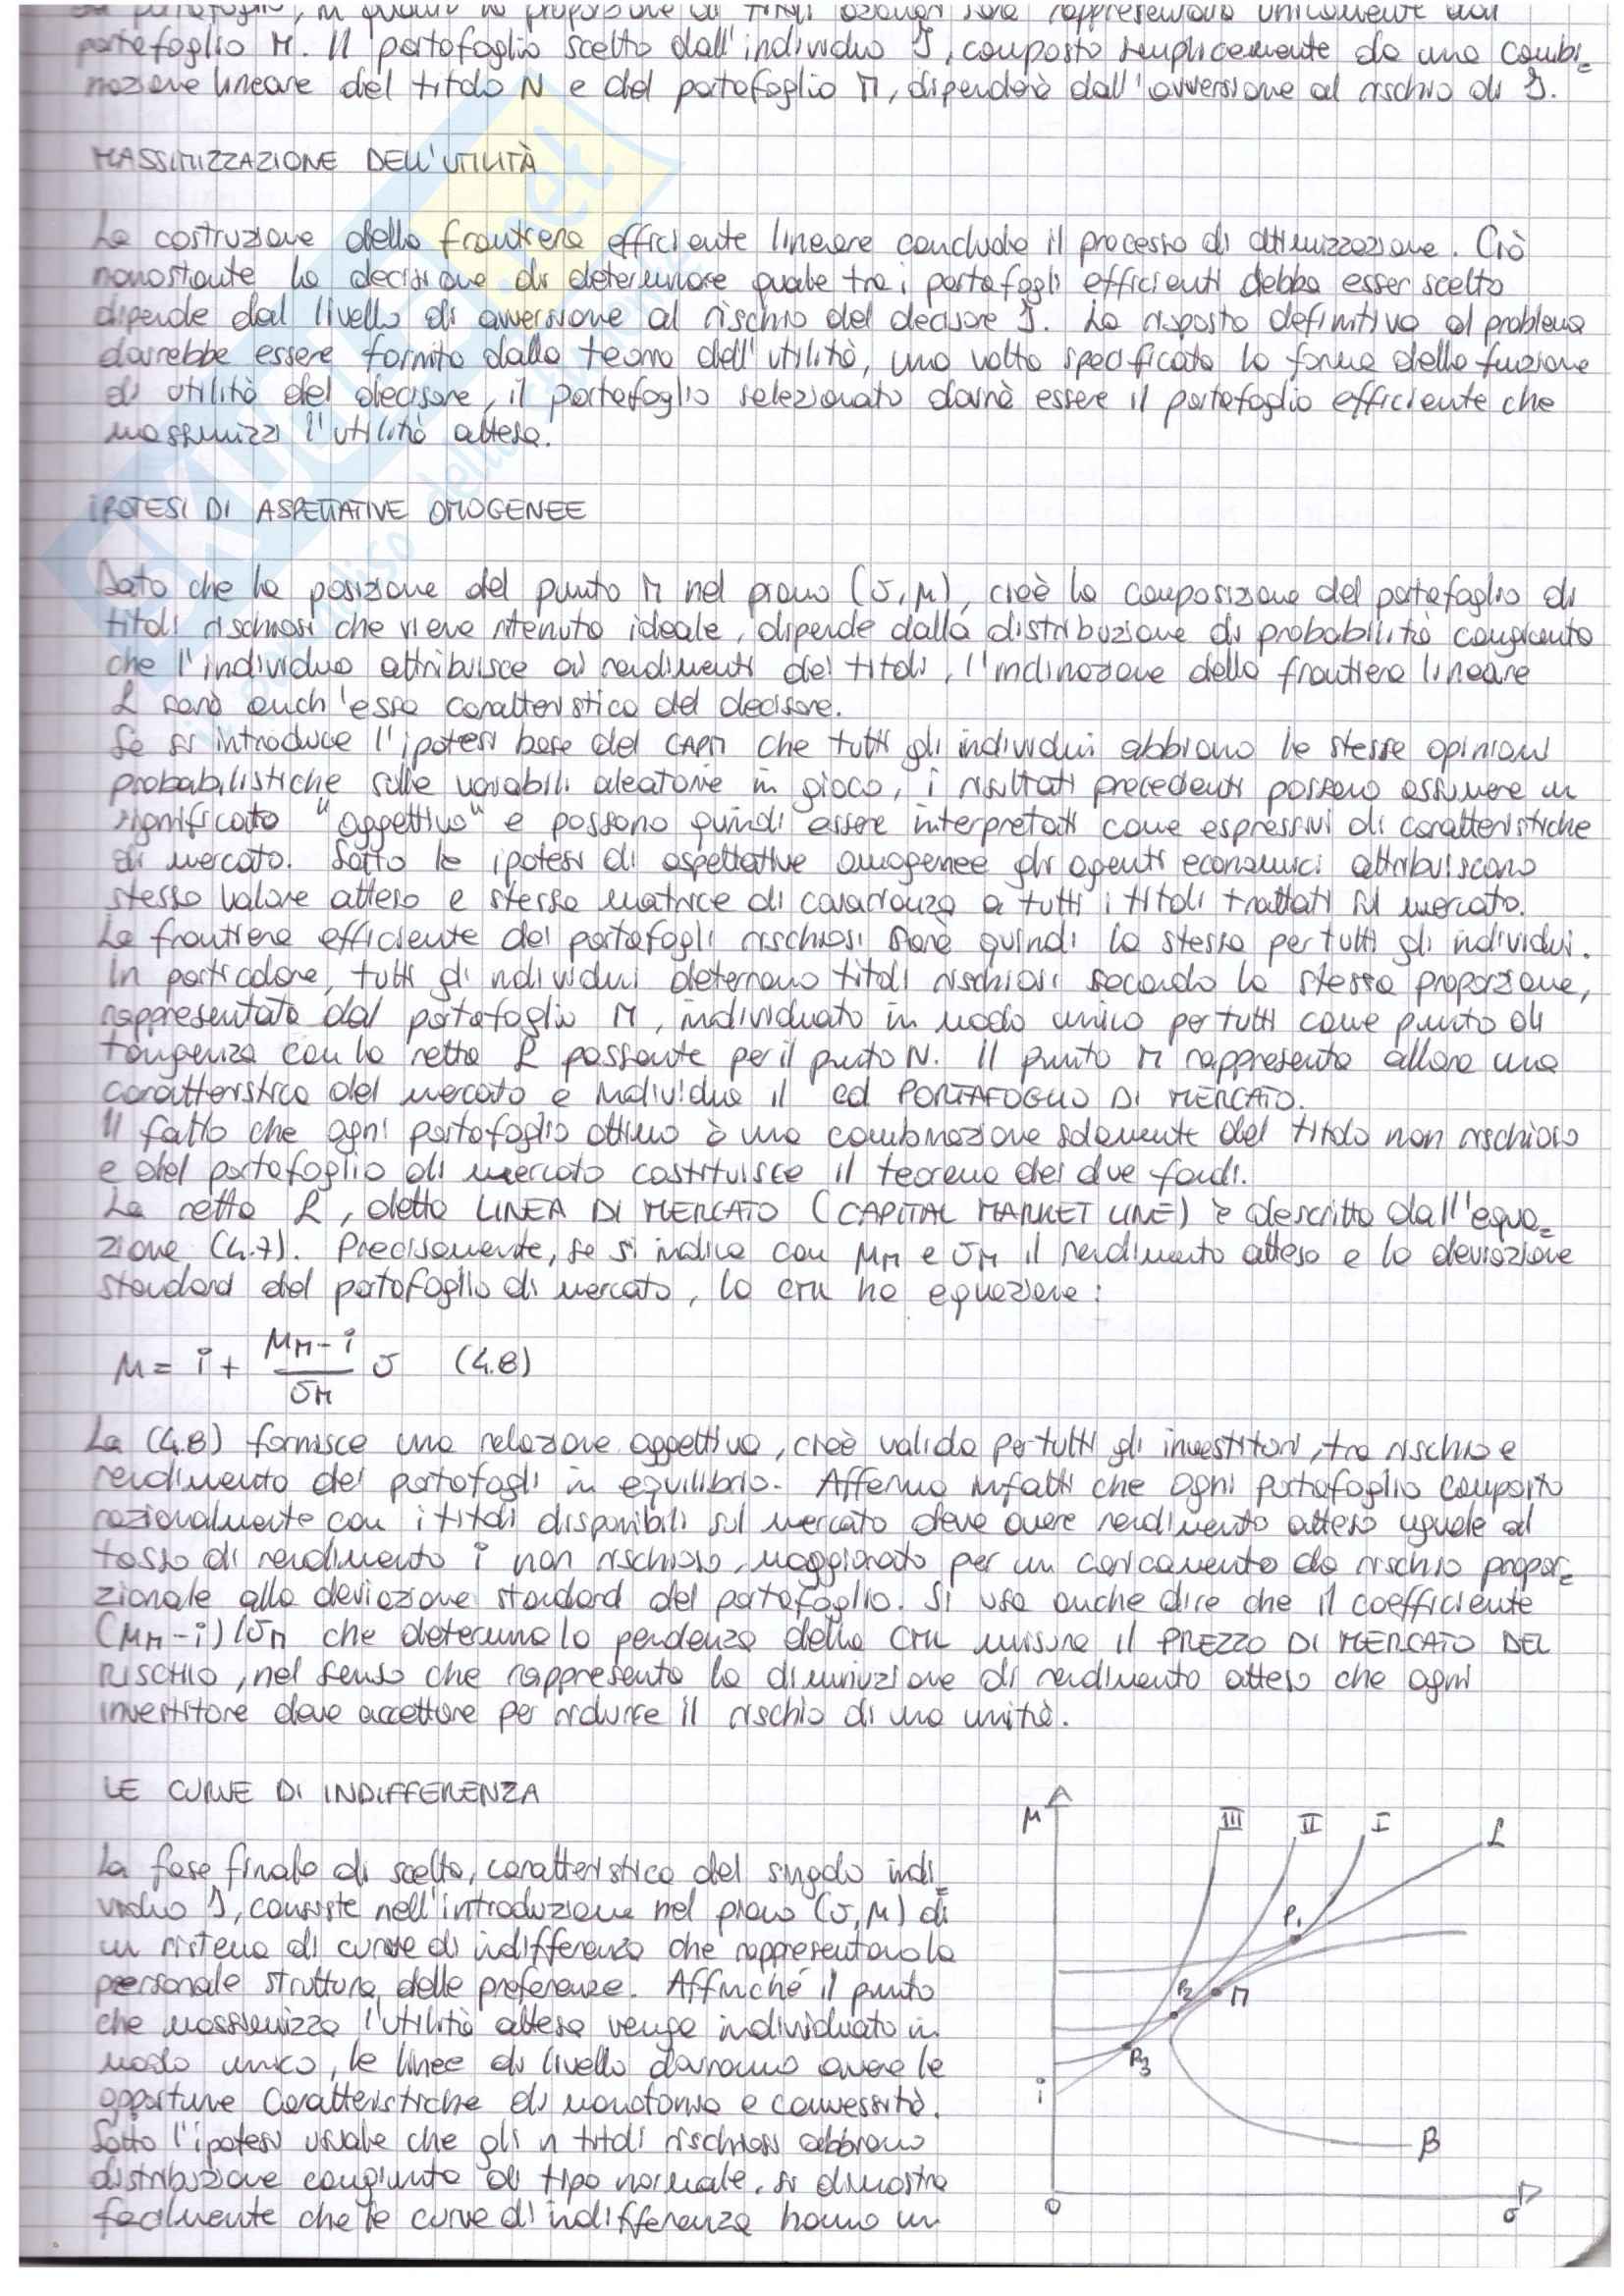 di portafoglio, in quanto la proporzione di titoli azionari sarà rappresentata unicamente dal
portafoglio M. Il portafoglio scelto dall'individuo I, composto semplicemente da una combi=
nazione lineare del titolo N e del portafoglio M, dipenderà dall'avversione al rischio di I.
MASSIMIZZAZIONE DELL'UTILITÀ
La costruzione della frontiera efficiente lineare conclude il processo di ottimizzazione. Ciò
nonostante la decisione di determinare quale tra i portafogli efficienti debba esser scelto
dipende dal livello di avversione al rischio del decisore I. La risposta definitiva al problema
dovrebbe essere fornita dalla teoria dell'utilità, una volta specificata la forma della funzione
di utilità del decisore, il portafoglio selezionato dovrà essere il portafoglio efficiente che
massimizzi l'utilità attesa.
IPOTESI DI ASPETTATIVE OMOGENEE
Dato che la posizione del punto M nel piano (σ,μ), cioè la composizione del portafoglio di
titoli rischiosi che viene ritenuto ideale, dipende dalla distribuzione di probabilità congiunta
che l'individuo attribuisce ai rendimenti dei titoli, l'inclinazione della frontiera lineare
L sarà anch'essa caratteristica del decisore.
Se si introduce l'ipotesi base del CAPM che tutti gli individui abbiano le stesse opinioni
probabilistiche sulle variabili aleatorie in gioco, i risultati precedenti possono assumere un
significato "oggettivo" e possono quindi essere interpretati come espressivi di caratteristiche
di mercato. Sotto le ipotesi di aspettative omogenee gli agenti economici attribuiscono
stesso valore atteso e stessa matrice di covarianza a tutti i titoli trattati sul mercato.
La frontiera efficiente dei portafogli rischiosi sarà quindi la stessa per tutti gli individui.
In particolare, tutti gli individui deterranno titoli rischiosi secondo la stessa proporzione,
rappresentata dal portafoglio M, individuato in modo unico per tutti come punto di
tangenza con la retta L passante per il punto N. Il punto M rappresenta allora una
caratteristica del mercato e individua il cd PORTAFOGLIO DI MERCATO.
Il fatto che ogni portafoglio ottimo è una combinazione solamente del titolo non rischioso
e del portafoglio di mercato costituisce il teorema dei due fondi.
La retta L, detta LINEA DI MERCATO (CAPITAL MARKET LINE) è descritta dall'equa=
zione (4.7). Precisamente, se si indica con μM e σM il rendimento atteso e la deviazione
standard del portafoglio di mercato, la CML ha equazione:
μ = i + (μM - i)/σM σ (4.8)
La (4.8) fornisce una relazione oggettiva, cioè valida per tutti gli investitori, tra rischio e
rendimento dei portafogli in equilibrio. Afferma infatti che ogni portafoglio composto
razionalmente con i titoli disponibili sul mercato deve avere rendimento atteso uguale al
tasso di rendimento i non rischioso, maggiorato per un caricamento da rischio propor=
zionale alla deviazione standard del portafoglio. Si usa anche dire che il coefficiente
(μM-i)/σM che determina la pendenza della CML misura il PREZZO DI MERCATO DEL
RISCHIO, nel senso che rappresenta la diminuzione di rendimento atteso che ogni
investitore deve accettare per ridurre il rischio di una unità.
LE CURVE DI INDIFFERENZA
La fase finale di scelta, caratteristica del singolo indi=
viduo I, consiste nell'introduzione nel piano (σ,μ) di
un sistema di curve di indifferenza che rappresentano la
personale struttura delle preferenze. Affinché il punto
che massimizza l'utilità attesa venga individuato in
modo unico, le linee di livello dovranno avere le
opportune caratteristiche di monotonia e convessità.
Sotto l'ipotesi usuale che gli n titoli rischiosi abbiano
distribuzione congiunta di tipo normale, si dimostra
facilmente che le curve di indifferenza hanno un
μ III II I L
P1
P2 M
P3
i
B
0 σ